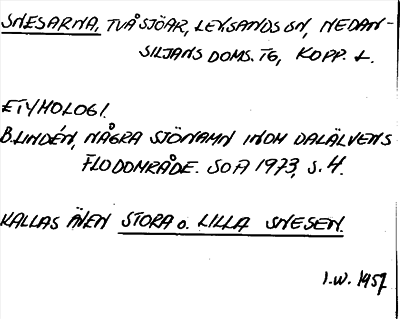 SNESARNA, TVÅ SJÖAR, LEKSANDS SN, NEDAN-
SILJANS DOMS. TG, KOPP. L.
ETYMOLOGI.
B. LINDÉN, NÅGRA SJÖNAMN INOM DALÄLVENS
FLODOMRÅDE. SOÅ 1973, S. 4.
KALLAS ÄVEN STORA o. LILLA SNESEN.
I.W. 1957